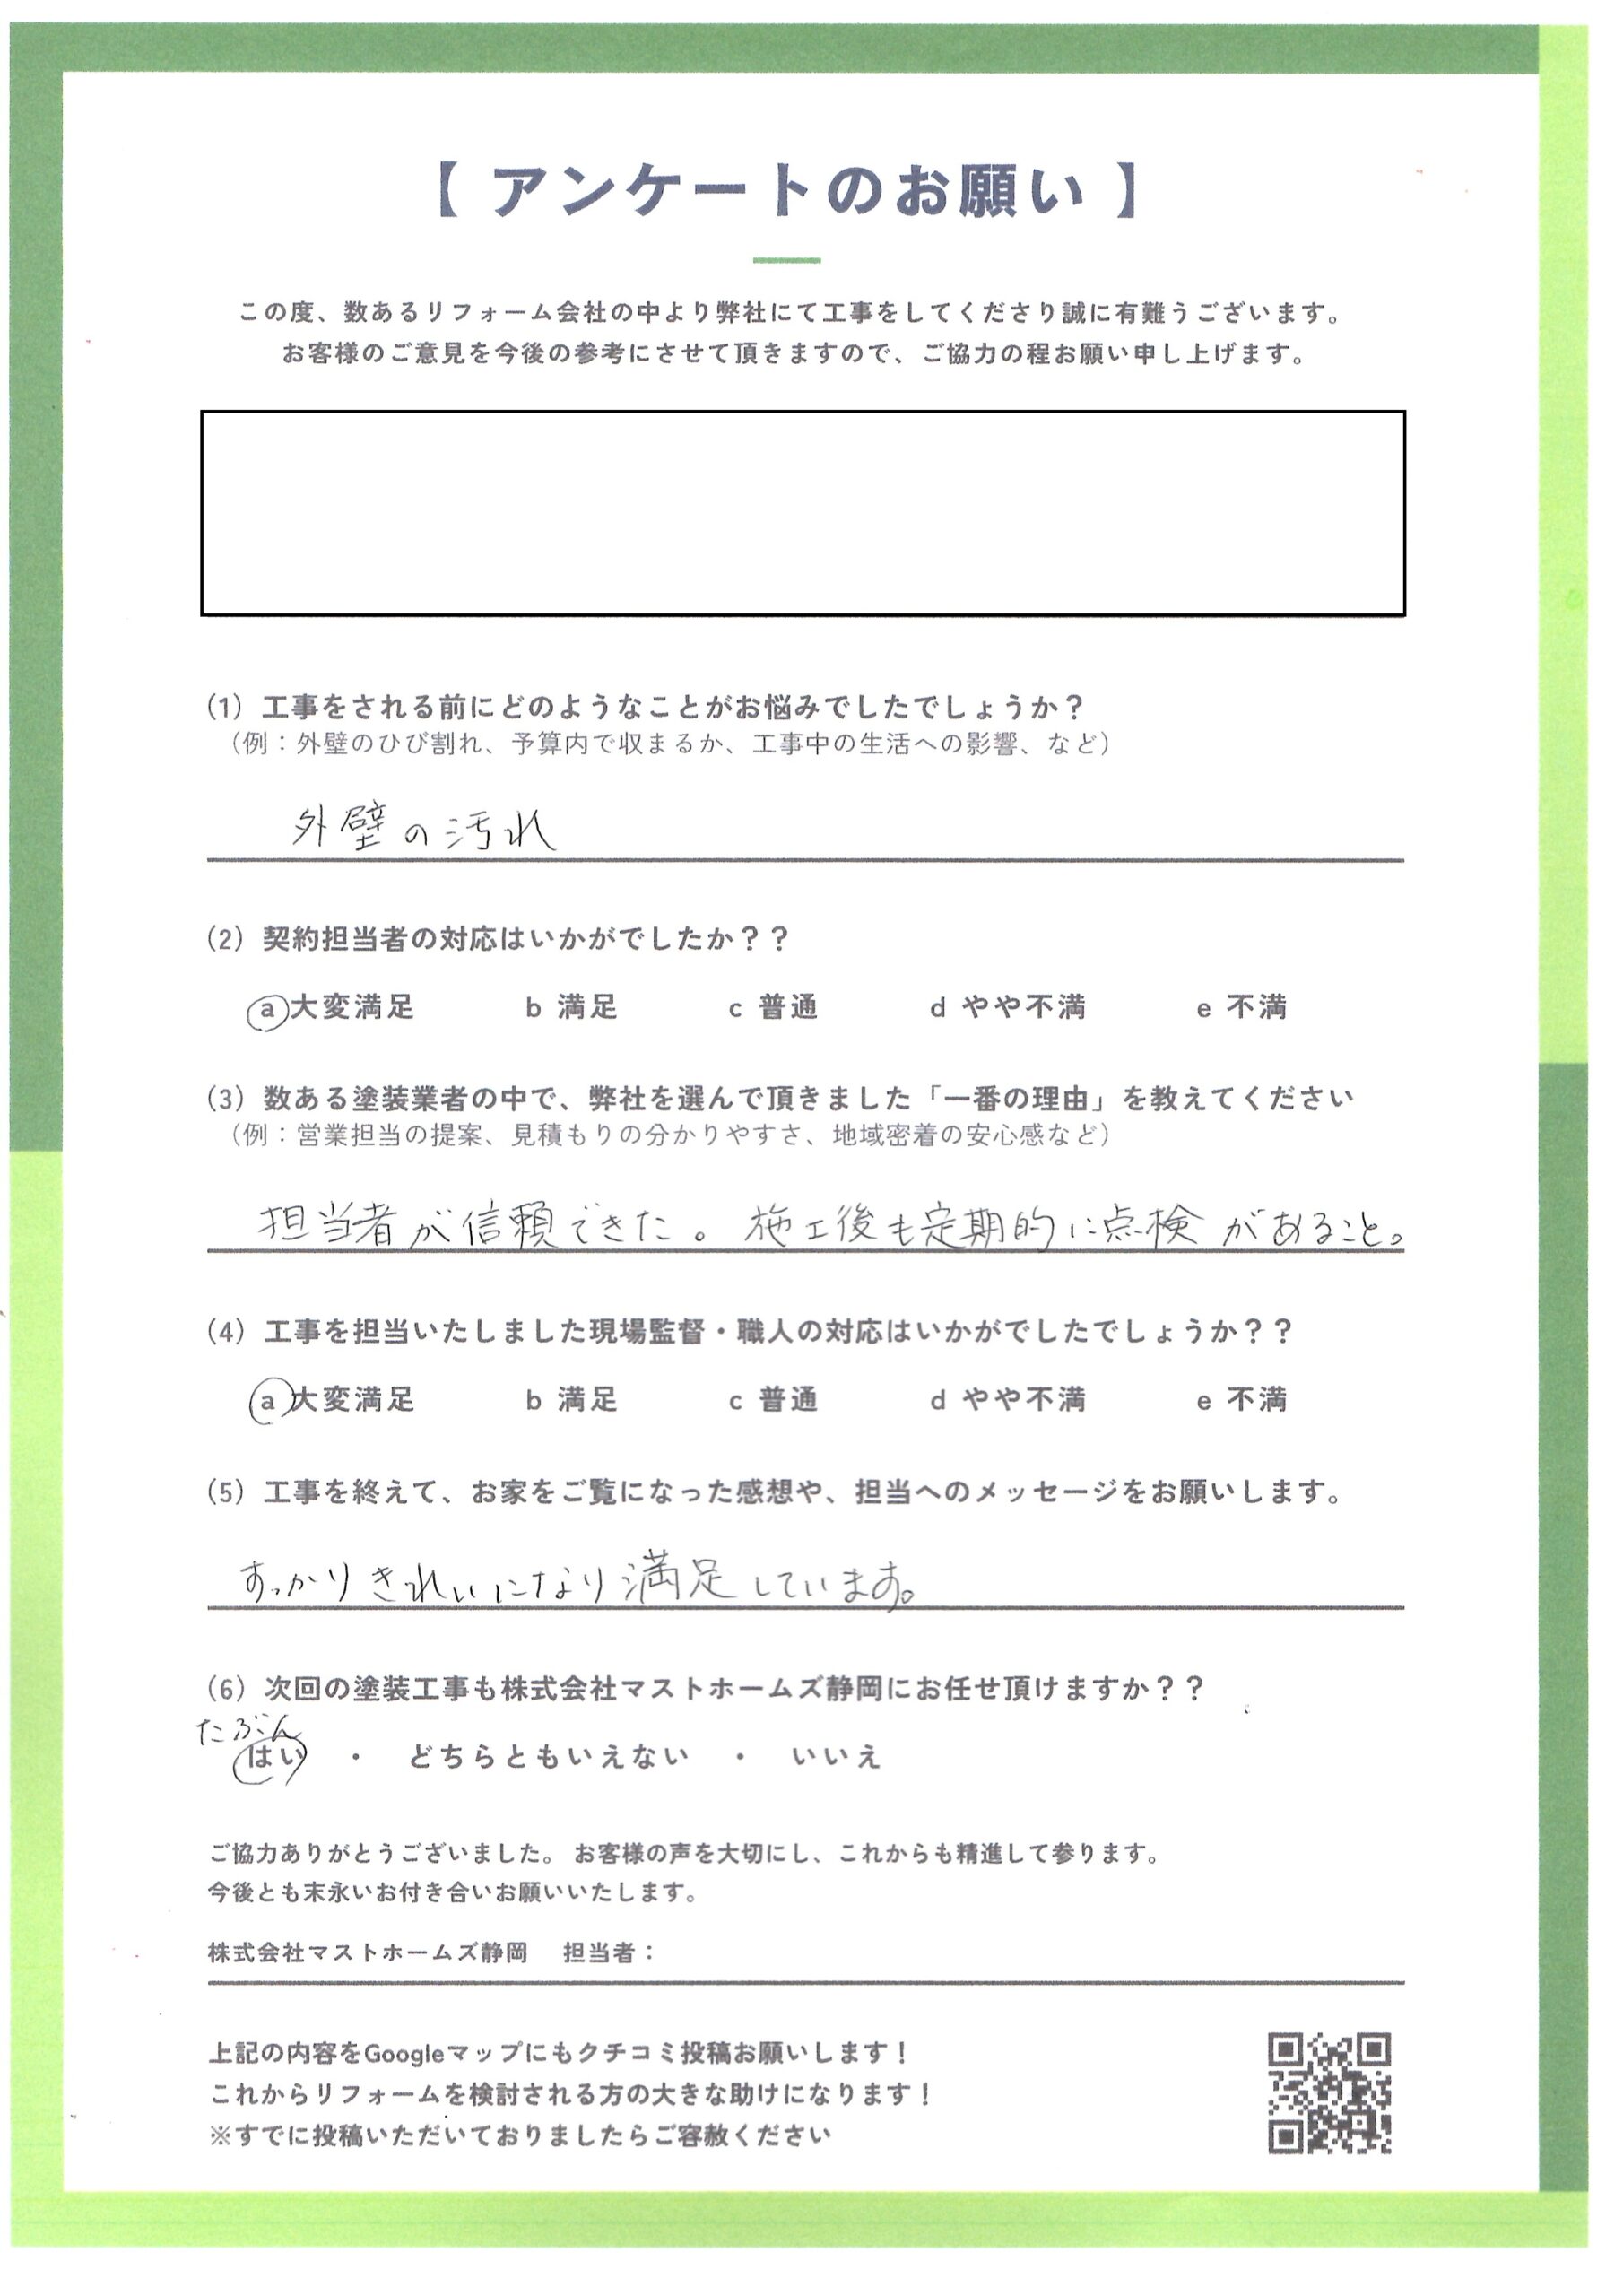 【 アンケートのお願い 】
この度、数あるリフォーム会社の中より弊社にて工事をしてくださり誠に有難うございます。
お客様のご意見を今後の参考にさせて頂きますので、ご協力の程お願い申し上げます。
(1) 工事をされる前にどのようなことがお悩みでしたでしょうか？
（例：外壁のひび割れ、予算内で収まるか、工事中の生活への影響、など）
外壁の汚れ
(2) 契約担当者の対応はいかがでしたか？？
a 大変満足 b 満足 c 普通 d やや不満 e 不満
(3) 数ある塗装業者の中で、弊社を選んで頂きました「一番の理由」を教えてください
（例：営業担当の提案、見積もりの分かりやすさ、地域密着の安心感など）
担当者が信頼できた。施工後も定期的に点検があること。
(4) 工事を担当いたしました現場監督・職人の対応はいかがでしたでしょうか？？
a 大変満足 b 満足 c 普通 d やや不満 e 不満
(5) 工事を終えて、お家をご覧になった感想や、担当へのメッセージをお願いします。
すっかりきれいになり満足しています。
(6) 次回の塗装工事も株式会社マストホームズ静岡にお任せ頂けますか？？
たぶん
はい ・ どちらともいえない ・ いいえ
ご協力ありがとうございました。 お客様の声を大切にし、これからも精進して参ります。
今後とも末永いお付き合いお願いいたします。
株式会社マストホームズ静岡 担当者：
上記の内容をGoogleマップにもクチコミ投稿お願いします！
これからリフォームを検討される方の大きな助けになります！
※すでに投稿いただいておりましたらご容赦ください